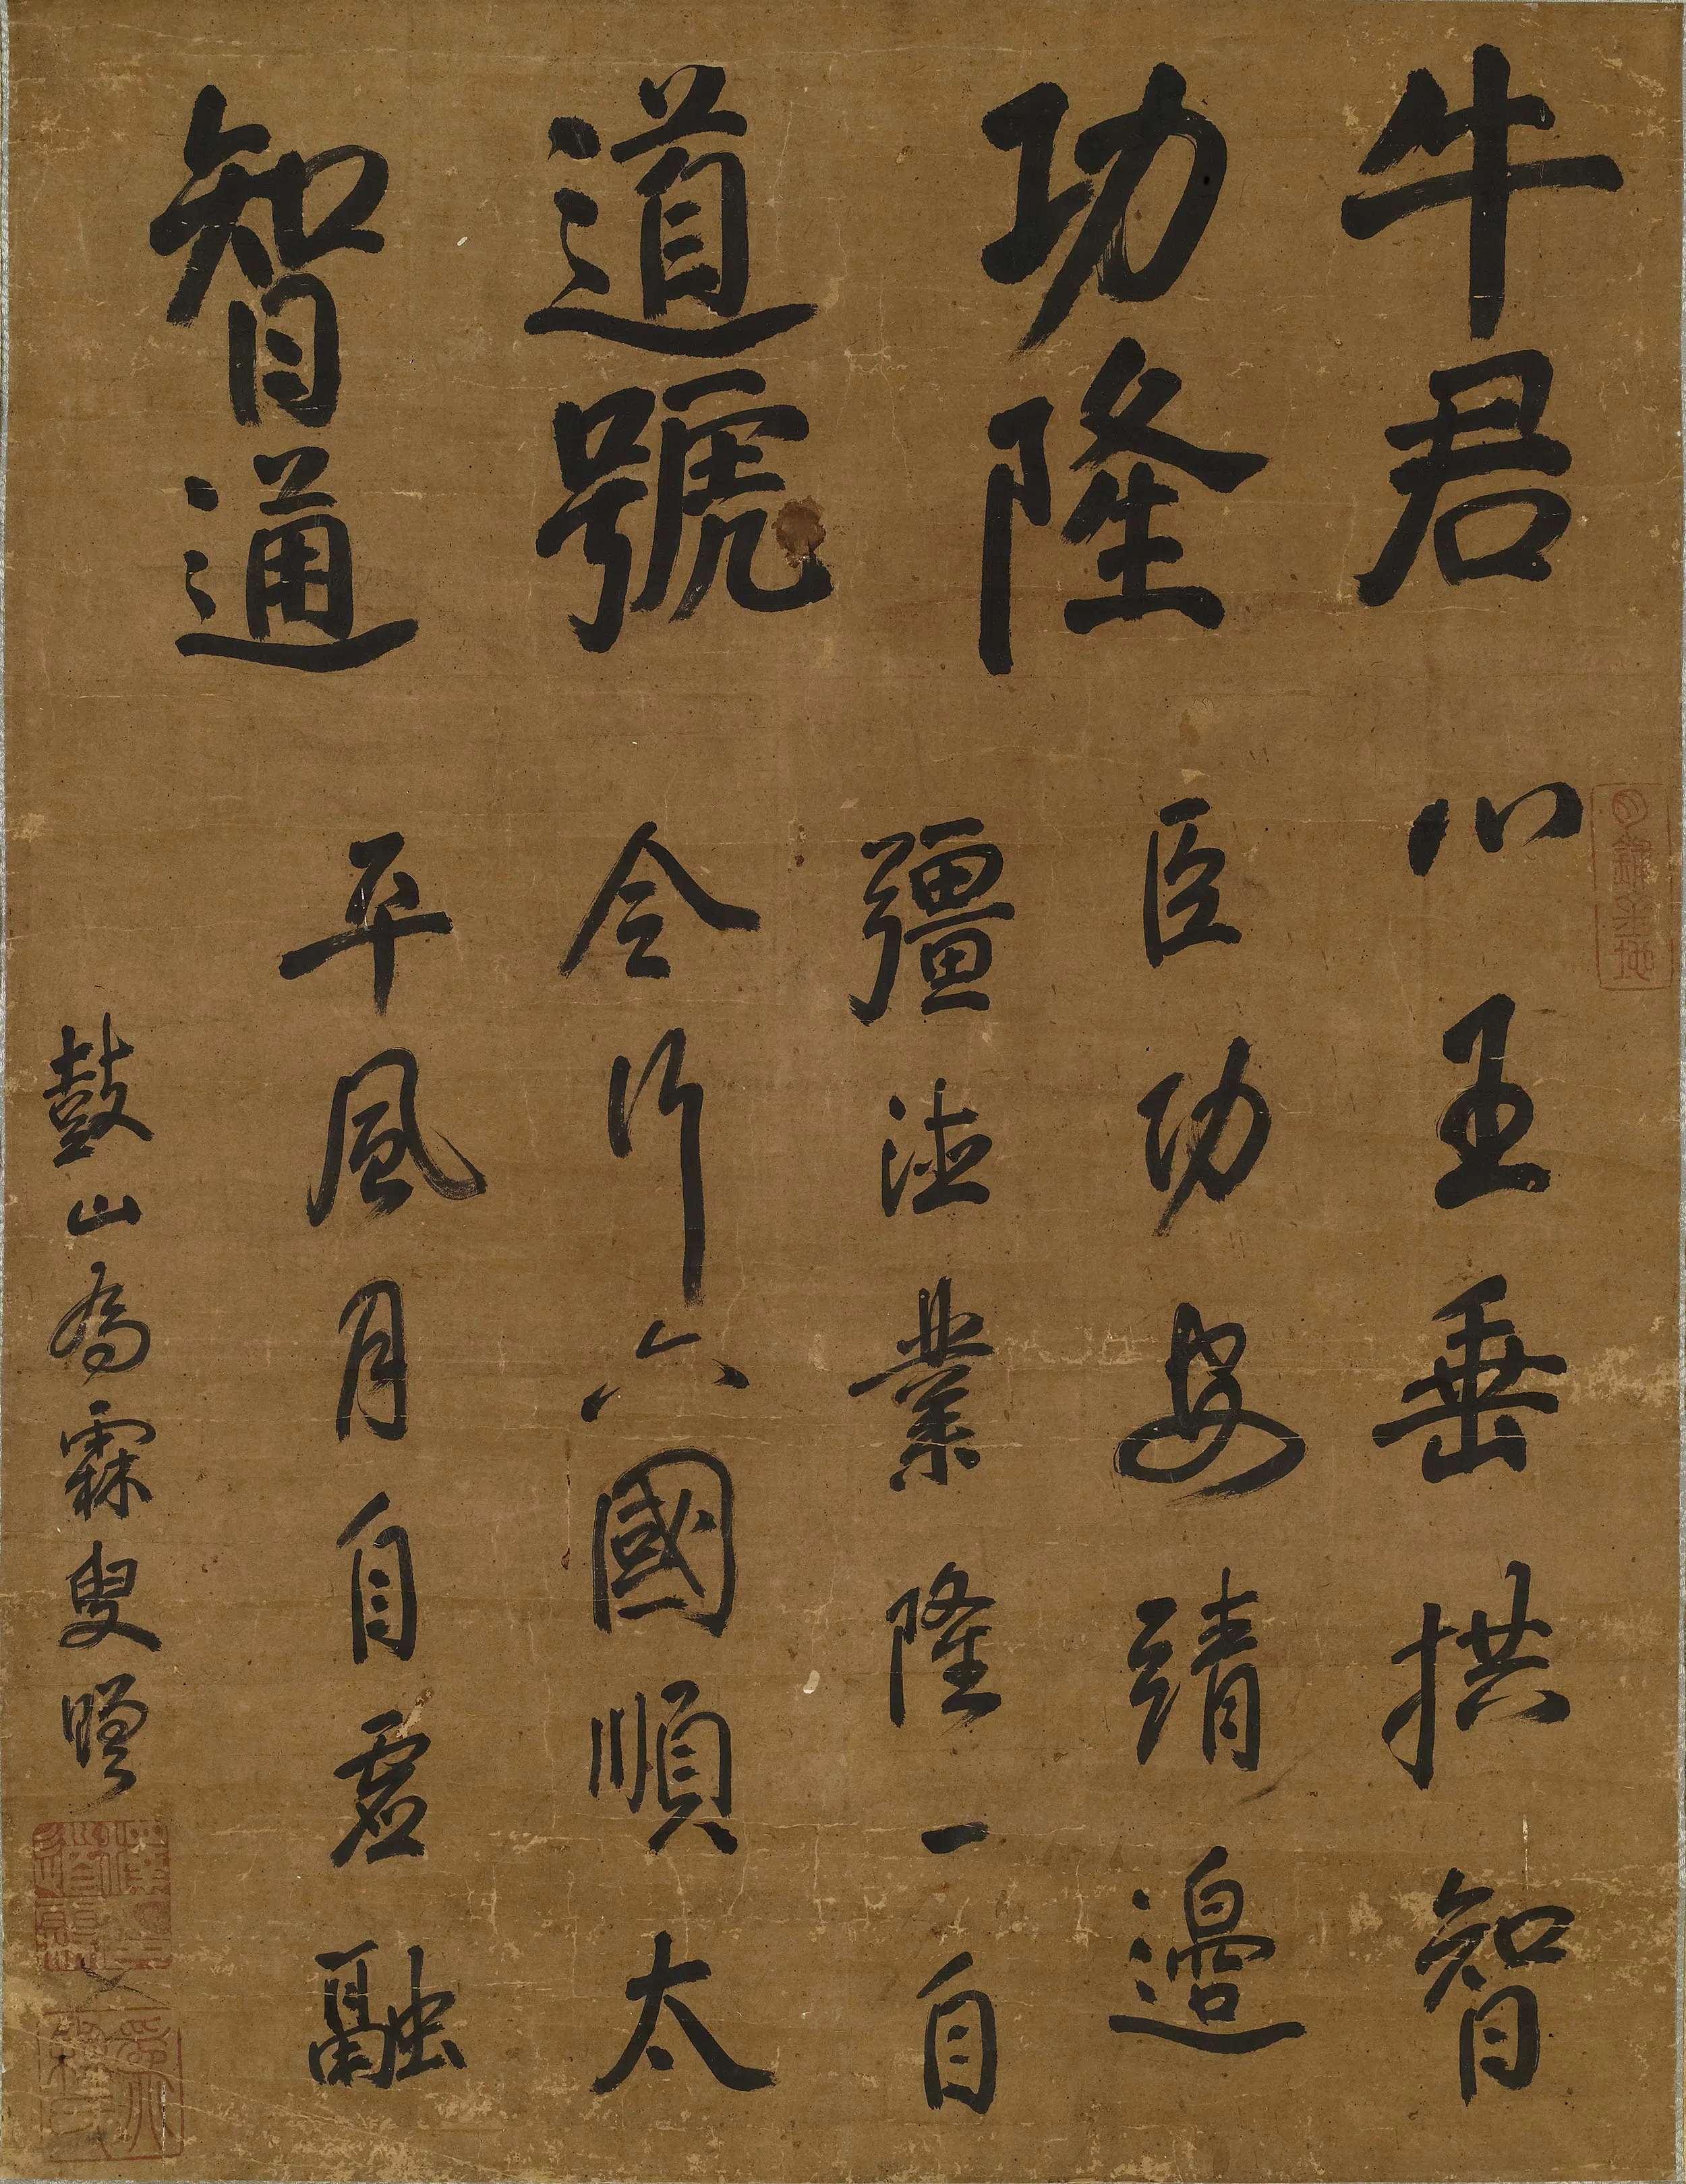 牛君
功隆
道號
智通
心王垂拱智
臣功安靖邊
疆法業隆一自
令行六國順太
平風月自虛融
鼓山為霖叟贈